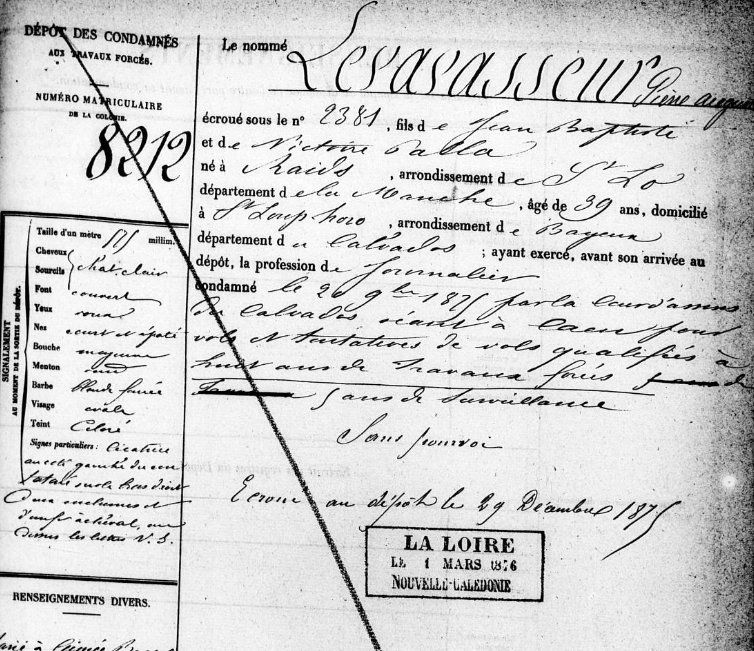 DÉPÔT DES CONDAMNÉS
AUX TRAVAUX FORCÉS.
NUMÉRO MATRICULAIRE
DE LA COLONIE.
8212
Le nommé Levavasseur Pierre
écroué sous le n° 2381, fils de Jean Baptiste
et de Victoire
né à Raids, arrondissement de St Lo
département de la Manche, âgé de 39 ans, domicilié
à St Loup hors, arrondissement de Bayeux
département du Calvados ; ayant exercé, avant son arrivée au
dépôt, la profession de Journalier
condamné le 20 9bre 1875 par la Cour d'assises
du Calvados séant à Caen pour
vols et tentatives de vols qualifiés à
huit ans de travaux forcés
5 ans de Surveillance
Sans pourvoi
Ecroué au dépôt le 29 Décembre 1875
LA LOIRE
LE 1 MARS 1876
NOUVELLE-CALEDONIE
SIGNALEMENT
AU MOMENT DE LA SORTIE DU DÉPÔT.
Taille d'un mètre 575 millim.
Cheveux
Sourcils chat. clair
Font couvert
Yeux roux
Nez court et épaté
Bouche moyenne
Menton rond
Barbe blonde
Visage ovale
Teint Coloré
Signes particuliers : Cicatrice
au côté gauche du cou
tatoué sur le bras droit
d'une enclume et
à cheval, au
dessus les lettres V. S.
RENSEIGNEMENTS DIVERS.